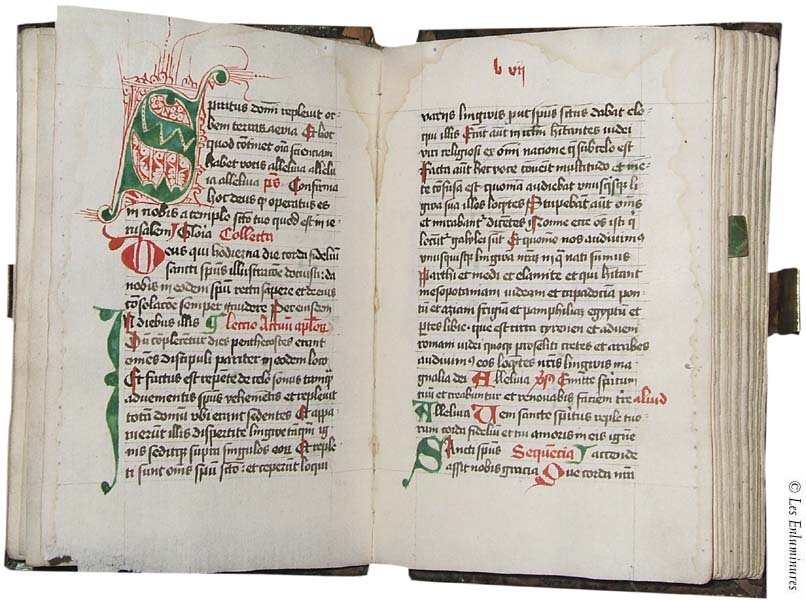 Spiritus domi repleuit or-
bem terrarū aeuia Et hoc
quod cōtinet oīa scienciam
habet vocis alleluia allelu
ia alleluia ps Confirma
hoc deus qd operatus es
in nobis a templo scto tuo quod est in ie-
rusalem Gloīa Collecta
Deus qui hodierna die corda fideliū
sancti spūs illustracōne docuisti: da
nobis in eodem spū recta sapere et de eius
cōsolacōe semper gaudere Per eiusdem
In diebus illis lectio Actuū aplōrꝫ
Cū cōplerētur dies penthecostes erant
omēs discipuli pariter in eodem loco
Et factus est repēte de celo sonus tamqꝫ
aduenientis spūs vehemētis et repleuit
totā domū vbi erant sedentes Et appa-
ruerūt illis dispertite lingwe tāqꝫ ig-
nis seditqꝫ supra singulos eorꝫ Et reple-
ti sunt omēs spū scto: et ceperūt loqui
lvii
varijs lingwis put spūs sctus dabat elo-
qui illis Erāt aūt in irlm hitantes iudei
viri religiosi ex omī nacione q̄ sub celo est
Facta aūt hec voce cōuenit multitudo et mē-
te cōfusa est quoniā audiebat vnusqꝫ li-
gwa sua illos loqētes Stupebāt aūt omēs
et mirabant dicētes Nonne ecce oēs isti qͥ
locūt galylei sūt Et quomō nos audiuimꝰ
vnusqꝫ lingwā nrām in q̄ nati sumus
Parthi et medi et elamite et qui hitant
mesopotamiā iudeam et capadociā pon
tū et asiam frigiā et pamphiliā egyptū et
ptes libie que est circa cyrenen et aduene
romani iudei quoqꝫ proseliti cretes et arabes
audiuimꝰ eos loqētes nrīs lingwis ma-
gnalia dei Alleluia vs Emitte spiritum
tuū et creabuntur et renouabis faciem tre aliud
Alleluia Veni sancte spiritus reple tuo-
rum corda fideliū et tui amoris in eis ignē
Sancti spūs Sequēcia accende
assit nobis gracia Que corda nrā
© Les Enluminures